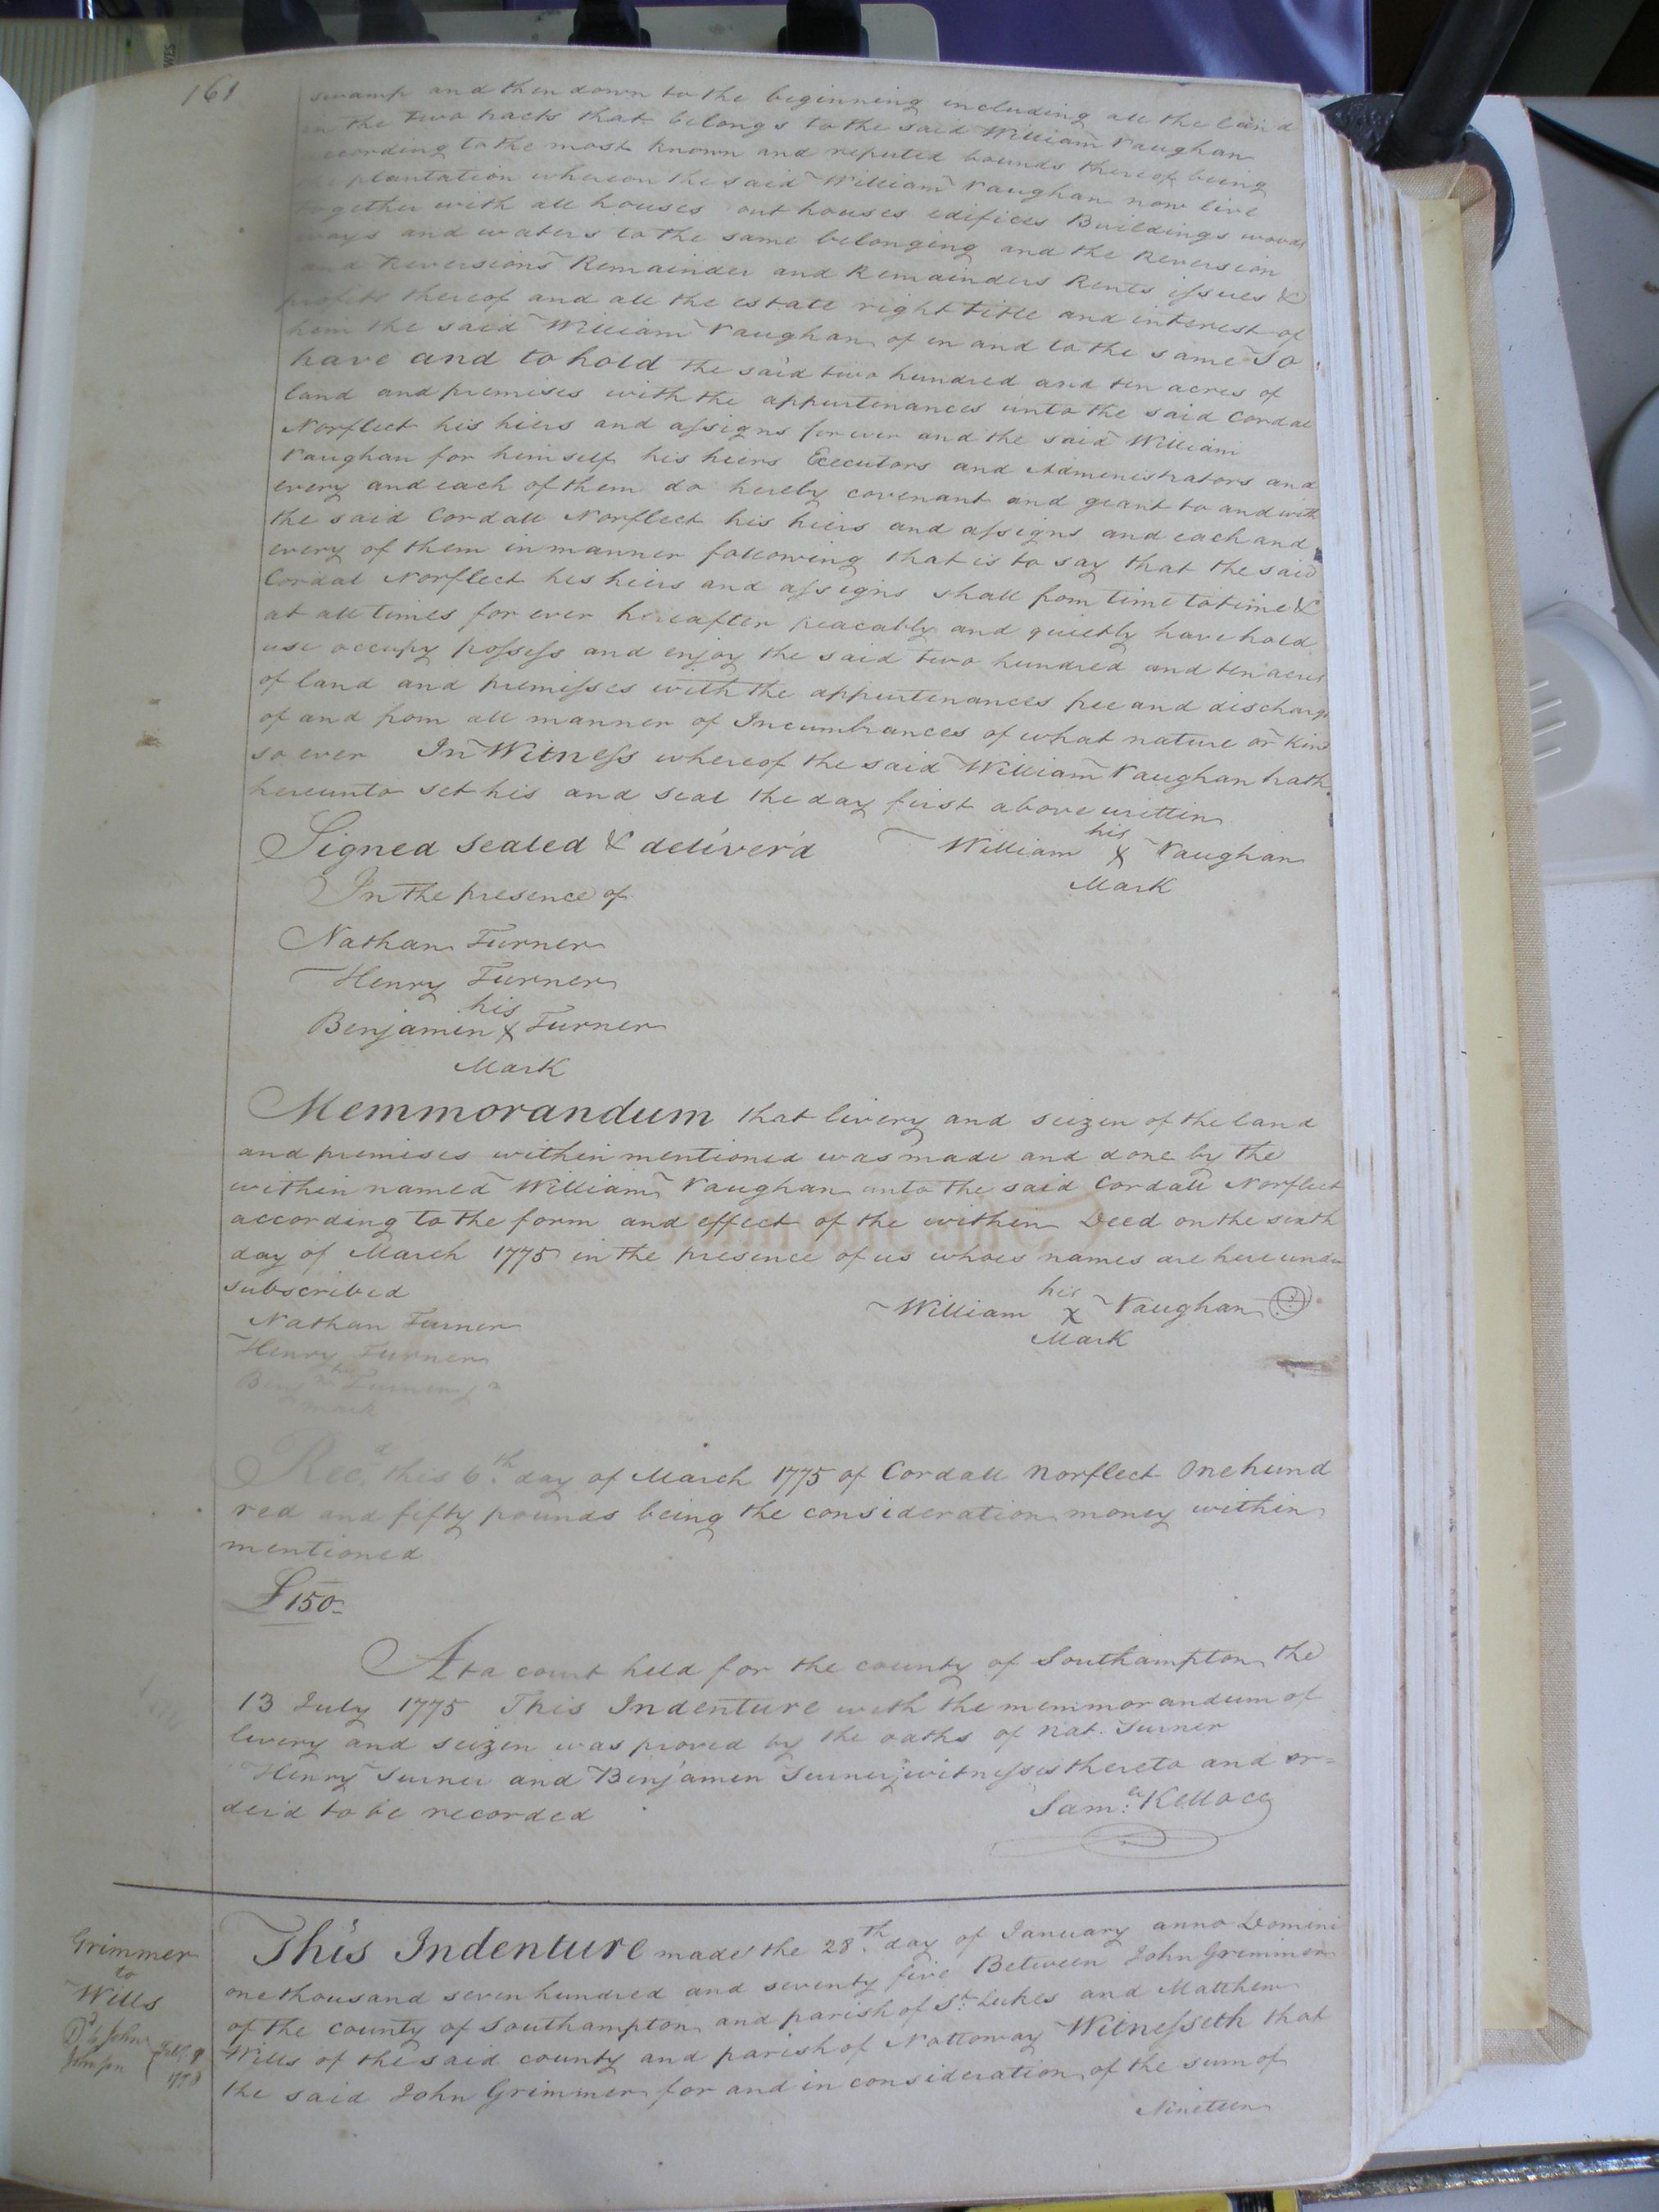 161
swamp and then down to the beginning including all the land
in the two tracts that belongs to the said William Vaughan
according to the most known and reputed bounds thereof being
the plantation whereon the said William Vaughan now live
together with all houses out houses edifices Buildings woods
ways and waters to the same belonging and the Reversion
and Reversions Remainder and Remainders Rents issues &
profits thereof and all the estate right title and interest of
him the said William Vaughan of in and to the same To
have and to hold the said two hundred and ten acres of
land and premises with the appurtenances unto the said Cordal
Norfleet his hiers and assigns for ever and the said William
Vaughan for himself his hiers Executors and Administrators and
every and each of them do hereby covenant and grant to and with
the said Cordall Norfleet his hiers and assigns and each and
every of them in manner following that is to say that the said
Cordal Norfleet his hiers and assigns shall from time to time &
at all times for ever hereafter peacably and quietly have hold
use occupy possess and enjoy the said two hundred and ten acres
of land and premisses with the appurtenances free and discharg
of and from all manner of Incumbrances of what nature or kind
so ever In Witness whereof the said William Vaughan hath
hereunto set his and seal the day first above written
Signed sealed & deliver'd William his X Vaughan
Mark
In the presence of
Nathan Turner
Henry Turner
his
Benjamin X Turner
Mark
Memmorandum that livery and seizen of the land
and premises within mentioned was made and done by the
within named William Vaughan unto the said Cordall Norfleet
according to the form and effect of the within Deed on the sixth
day of March 1775 in the presence of us whoes names are here under
subscribed
his
William X Vaughan
Mark
Nathan Turner
Henry Turner
Benj Turner
mark
Recd. this 6th. day of March 1775 of Cordall Norfleet One hund
red and fifty pounds being the consideration money within
mentioned
£150-
At a court held for the county of Southampton the
13 July 1775 This Indenture with the memmorandum of
livery and seizen was proved by the oaths of Nat. Turner
Henry Turner and Benjamen Turner witnesses thereto and or=
der'd to be recorded
Sam:ll Kelloce
Grimmer
to
Wills
Dd. to John
Simpson
Feby. 9
1778
This Indenture made the 28th. day of January anno Domini
one thousand seven hundred and seventy five Between John Grimmer
of the county of Southampton and parish of St. Lukes and Matthew
Wills of the said county and parish of Nottoway Witnesseth that
the said John Grimmer for and in consideration of the sum of
Nineteen